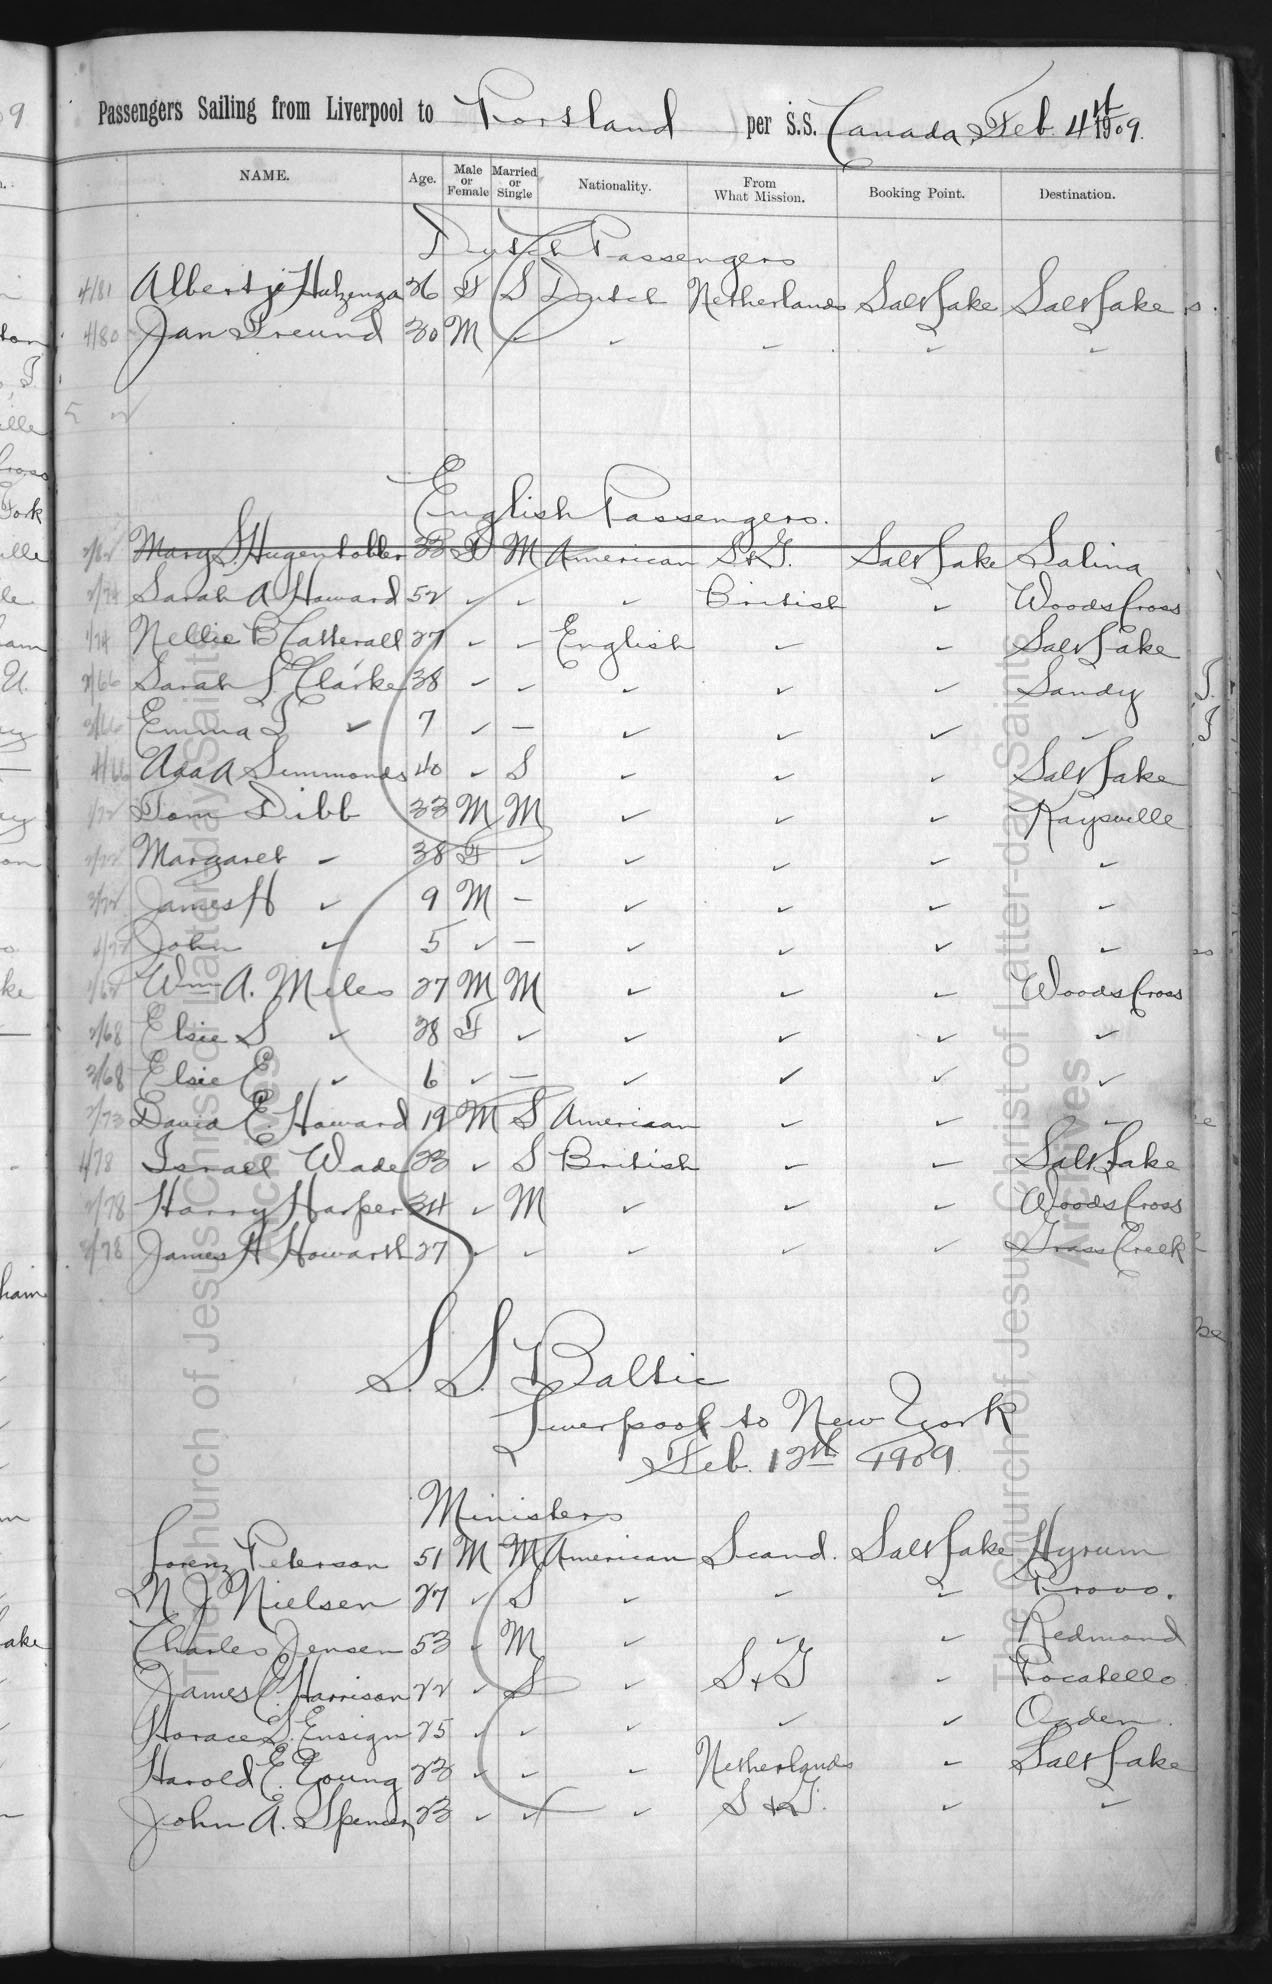 Passengers Sailing from Liverpool to Portland per S.S. Canada Feb. 4th 1909.
NAME. Age. Male or Female Married or Single Nationality. From What Mission. Booking Point. Destination.
Dutch Passengers
4/81 Albertje Hulzenga 26 F S Dutch Netherlands Salt Lake Salt Lake
4/80 Jan Freund 30 M ✓ ✓ ✓ ✓ ✓
English Passengers.
2/82 Mary S. Hugentobler 33 F M American S & G. Salt Lake Salina
2/74 Sarah A Howard 52 ✓ ✓ ✓ British ✓ Woods Cross
1/74 Nellie B Catterall 27 ✓ ✓ English ✓ ✓ Salt Lake
2/66 Sarah L Clarke 38 ✓ ✓ ✓ ✓ ✓ Sandy
3/66 Emma L ✓ 7 ✓ — ✓ ✓ ✓ ✓
4/66 Ada A Simmonds 40 ✓ S ✓ ✓ ✓ Salt Lake
1/72 Tom Dibb 33 M M ✓ ✓ ✓ Kaysville
2/72 Margaret ✓ 38 F ✓ ✓ ✓ ✓ ✓
3/72 James H ✓ 9 M — ✓ ✓ ✓ ✓
4/72 John ✓ 5 ✓ — ✓ ✓ ✓ ✓
1/68 Wm A. Miles 27 M M ✓ ✓ ✓ Woods Cross
2/68 Elsie S ✓ 28 F ✓ ✓ ✓ ✓ ✓
3/68 Elsie E ✓ 6 ✓ — ✓ ✓ ✓ ✓
2/73 David E. Howard 19 M S American ✓ ✓ ✓
4/78 Israel Wade 23 ✓ S British ✓ ✓ Salt Lake
2/78 Harry Harper 34 ✓ M ✓ ✓ ✓ Woods Cross
3/78 James H Howarth 27 ✓ ✓ ✓ ✓ ✓ Grass Creek
S. S. Baltic
Liverpool to New York
Feb. 12th 1909
Ministers
Lorenz Peterson 51 M M American Scand. Salt Lake Hyrum
N J Nielsen 27 ✓ S ✓ ✓ ✓ Provo.
Charles Jensen 53 ✓ M ✓ ✓ ✓ Redmond
James C. Harrison 22 ✓ S ✓ S & G ✓ Pocatello
Horace S. Ensign 25 ✓ ✓ ✓ ✓ ✓ Ogden
Harold E. Young 23 ✓ ✓ ✓ Netherlands ✓ Salt Lake
John A. Spencer 23 ✓ ✓ ✓ S & G. ✓ ✓
The Church of Jesus Christ of Latter-day Saints
Archives
The Church of Jesus Christ of Latter-day Saints
Archives